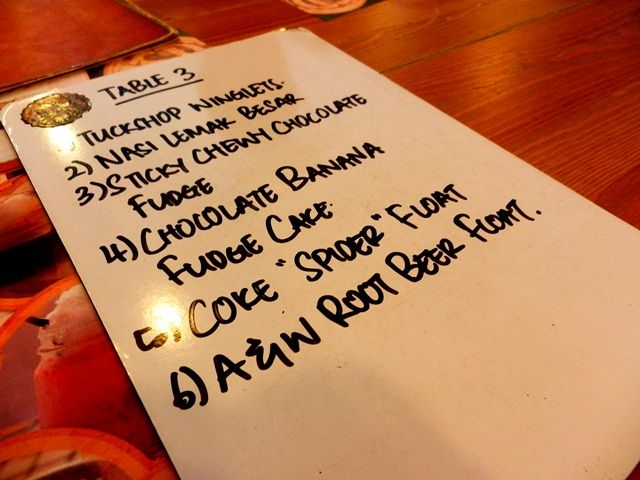 TABLE 3
TUCKSHOP WINGLETS.
2) NASI LEMAK BESAR
3) STICKY CHEWY CHOCOLATE
FUDGE
4) CHOCOLATE BANANA
FUDGE CAKE.
5) COKE "SPIDER" FLOAT
6) A&W ROOT BEER FLOAT.